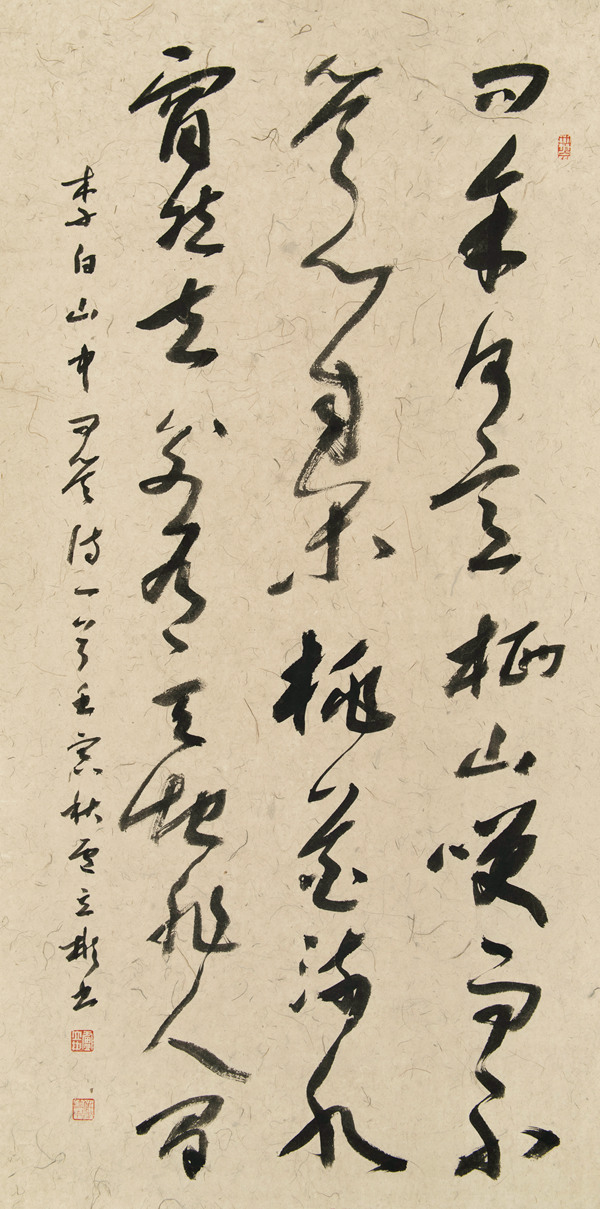 问余何意栖山咲而不
答心自闲桃花流水
窅然去别有天地非人间
李白山中问答诗一首壬寅秋卢立彬书